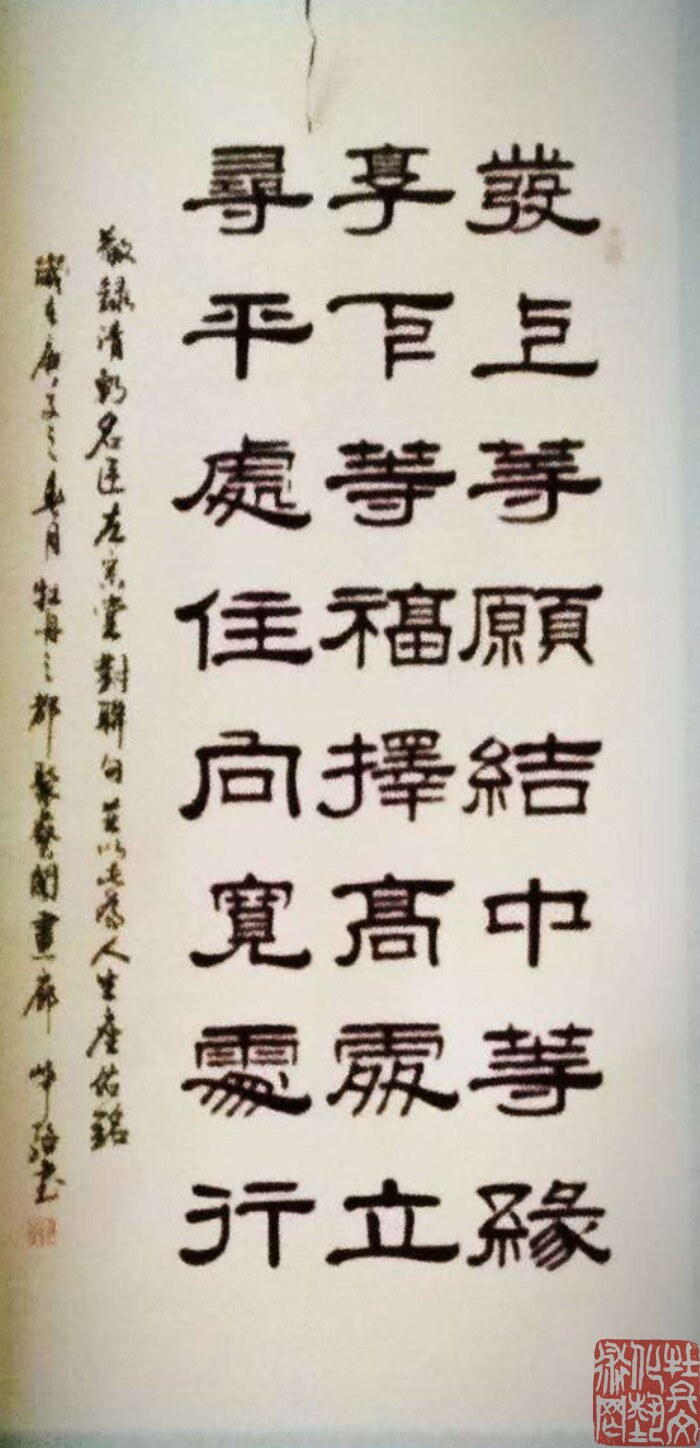 發上等願結中等緣
享下等福擇高處立
尋平處住向寬處行
敬録清朝名臣左宗棠對聯句並以此爲人生座佑銘
歲在庚子之春月牡丹之都聚藝閣畫廊